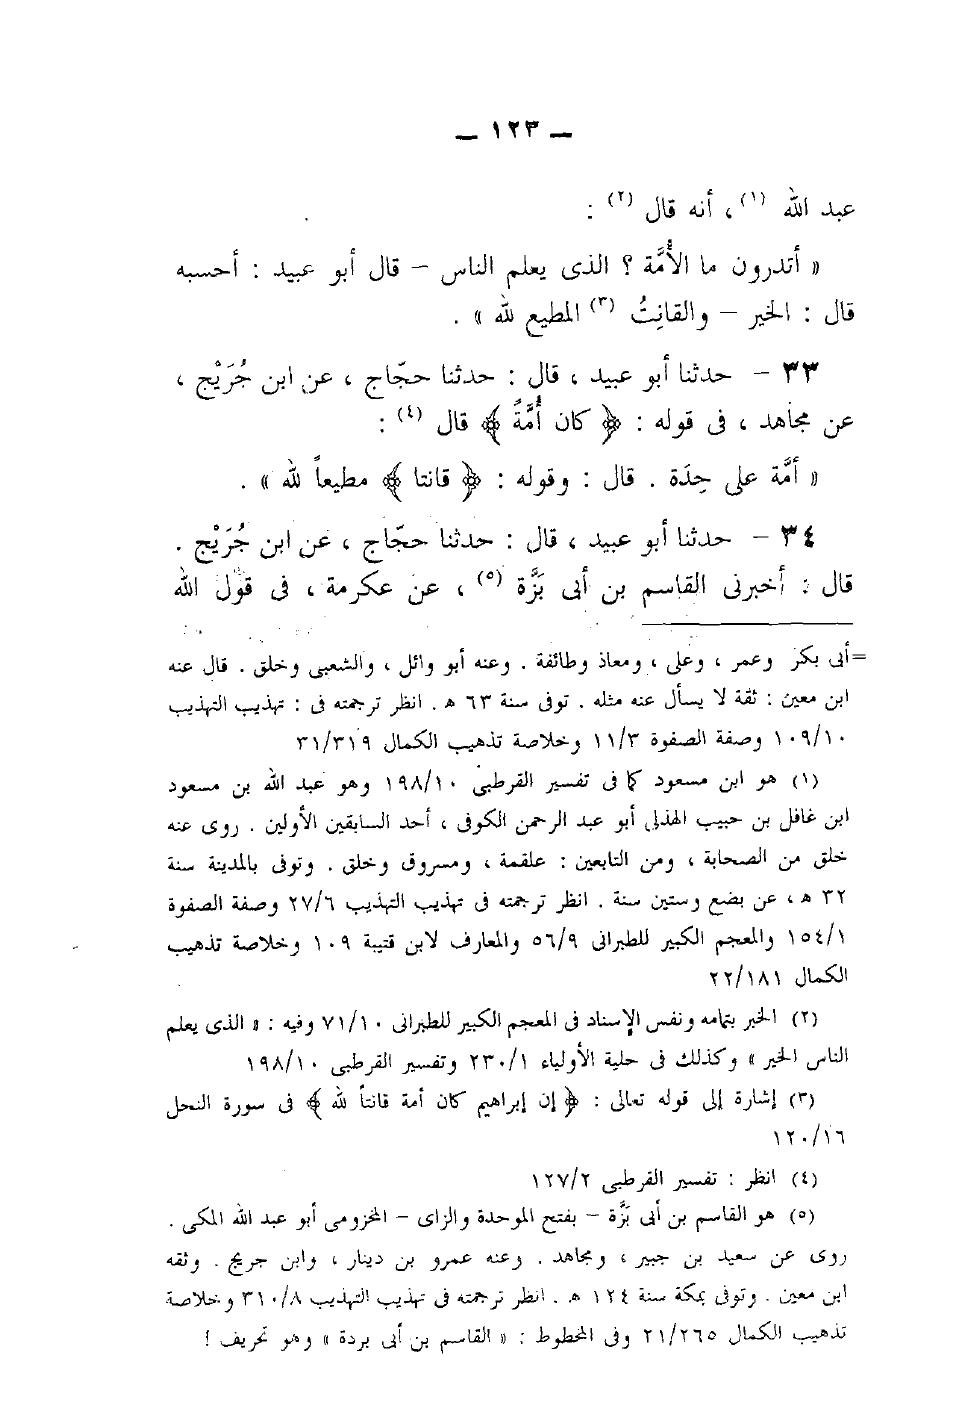 — ١٢٣ —
عبد الله (١) ، أنه قال (٢) :
« أتدرون ما الأُمَّة ؟ الذى يعلم الناس – قال أبو عبيد : أحسبه
قال : الخير – والقانِتُ (٣) المطيع لله » .
٣٣ – حدثنا أبو عبيد ، قال : حدثنا حجّاج ، عن ابن جُرَيْج ،
عن مجاهد ، فى قوله : ﴿ كان أُمَّةً ﴾ قال (٤) :
« أمَّة على حِدَة . قال : وقوله : ﴿ قانتا ﴾ مطيعاً لله » .
٣٤ – حدثنا أبو عبيد ، قال : حدثنا حجّاج ، عن ابن جُرَيْج .
قال : أخبرنى القاسم بن أبى بَزَّة (٥) ، عن عكرمة ، فى قول الله
=أبى بكر وعمر ، وعلى ، ومعاذ وطائفة . وعنه أبو وائل ، والشعبى وخلق . قال عنه
ابن معين : ثقة لا يسأل عنه مثله . توفى سنة ٦٣ ه . انظر ترجمته فى : تهذيب التهذيب
١٠٩/١٠ وصفة الصفوة ١١/٣ وخلاصة تذهيب الكمال ٣١/٣١٩
(١) هو ابن مسعود كما فى تفسير القرطبى ١٩٨/١٠ وهو عبد الله بن مسعود
ابن غافل بن حبيب الهذلى أبو عبد الرحمن الكوفى ، أحد السابقين الأولين . روى عنه
خلق من الصحابة ، ومن التابعين : علقمة ، ومسروق وخلق . وتوفى بالمدينة سنة
٣٢ ه ، عن بضع وستين سنة . انظر ترجمته فى تهذيب التهذيب ٢٧/٦ وصفة الصفوة
١٥٤/١ والمعجم الكبير للطبرانى ٥٦/٩ والمعارف لابن قتيبة ١٠٩ وخلاصة تذهيب
الكمال ٢٢/١٨١
(٢) الخبر بتمامه ونفس الإسناد فى المعجم الكبير للطبرانى ٧١/١٠ وفيه : « الذى يعلم
الناس الخير » وكذلك فى حلية الأولياء ٢٣٠/١ وتفسير القرطبى ١٩٨/١٠
(٣) إشارة إلى قوله تعالى : ﴿ إن إبراهيم كان أمة قانتاً لله ﴾ فى سورة النحل
١٢٠/١٦
(٤) انظر : تفسير القرطبى ١٢٧/٢
(٥) هو القاسم بن أبى بَزَّة – بفتح الموحدة والزاى – المخزومى أبو عبد الله المكى .
روى عن سعيد بن جبير ، ومجاهد . وعنه عمرو بن دينار ، وابن جريج . وثقه
ابن معين . وتوفى بمكة سنة ١٢٤ ه . انظر ترجمته فى تهذيب التهذيب ٣١٠/٨ وخلاصة
تذهيب الكمال ٢١/٢٦٥ وفى المخطوط : « القاسم بن أبى بردة » وهو تحريف !